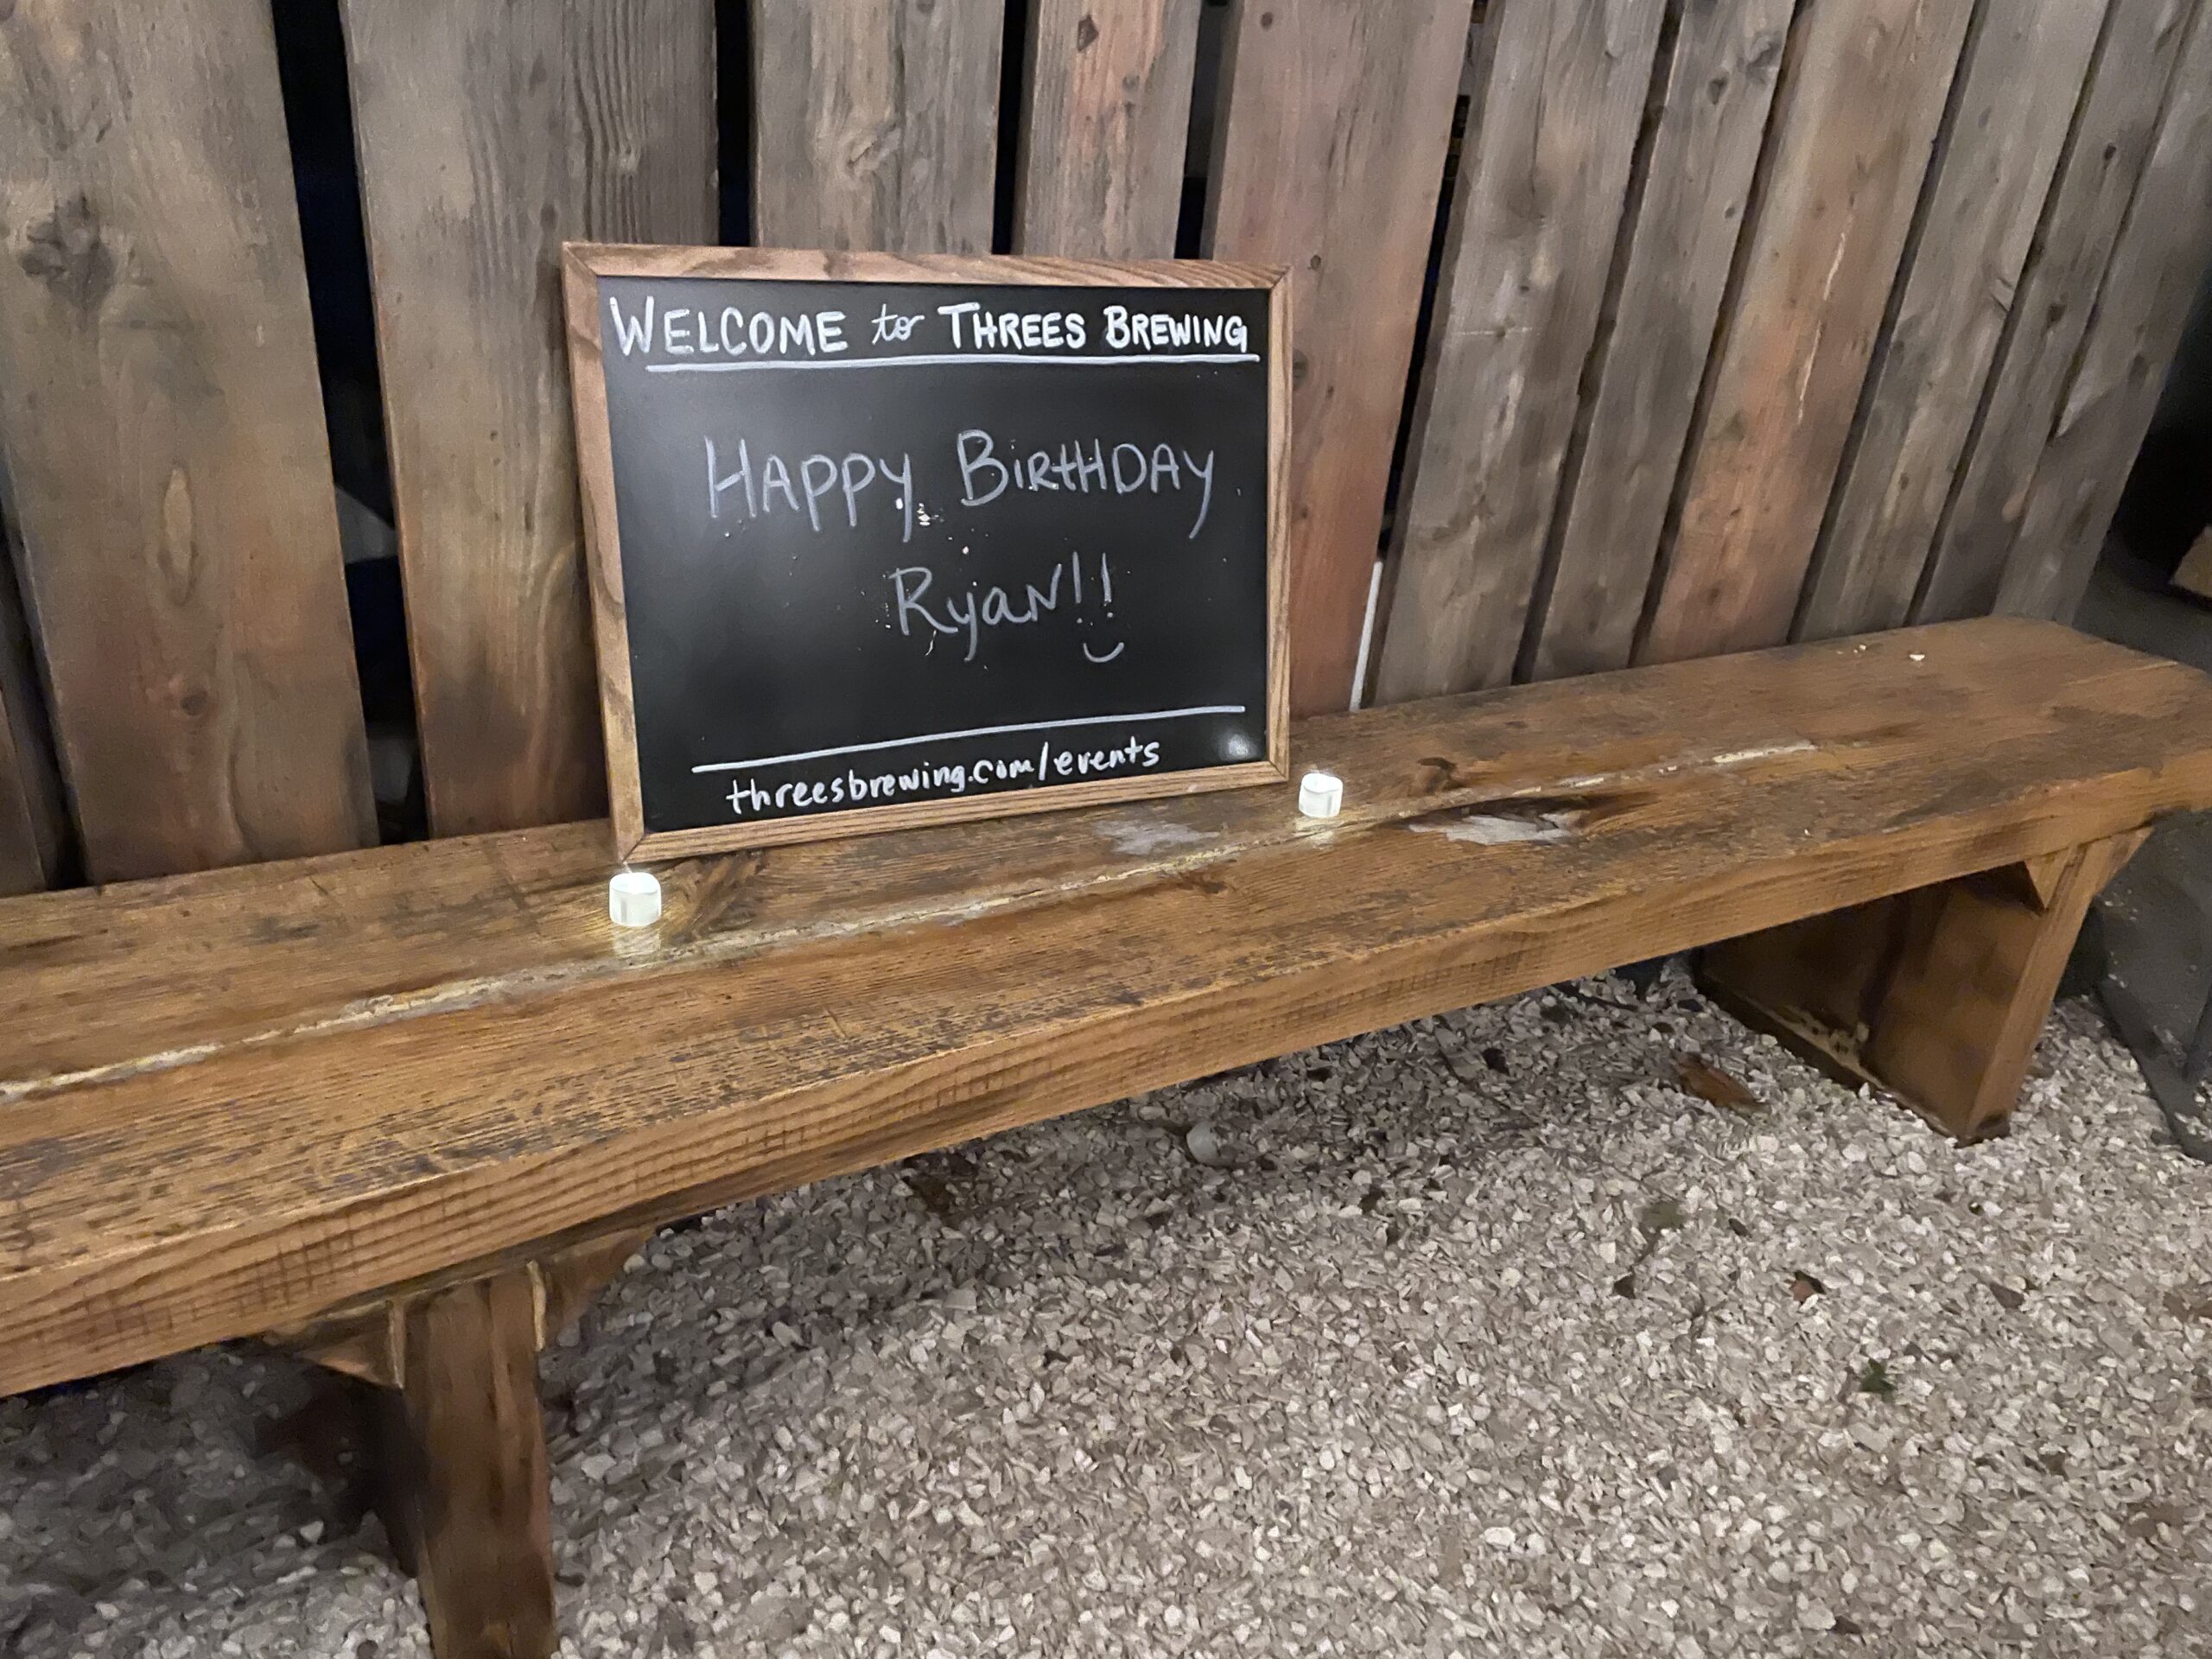 WELCOME to THREES BREWING
HAPPY BIRTHDAY
RyaN!!
threesbrewing.com/events